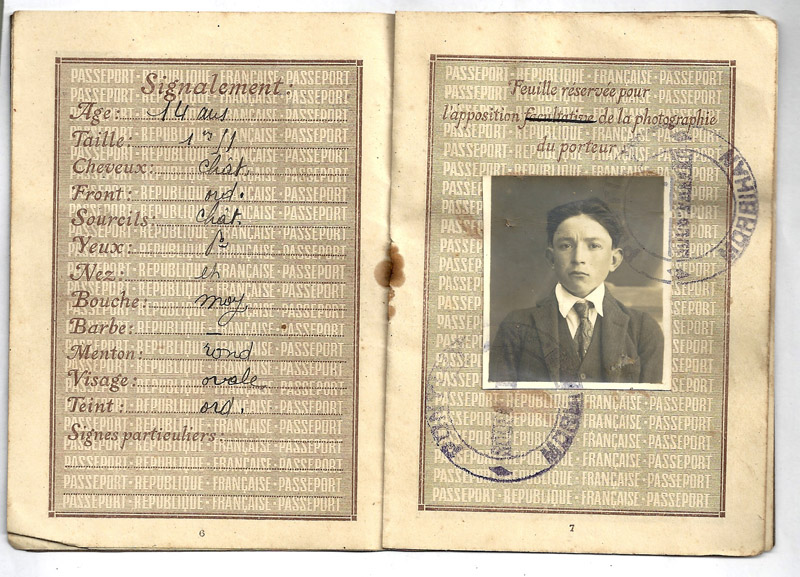 Signalement:
Age: 14 ans
Taille: 1 m
Cheveux: chât.
Front: ord.
Sourcils: chât.
Yeux:
Nez:
Bouche: moy
Barbe: –
Menton: rond
Visage: ovale
Teint: ord.
Signes particuliers:
6
Feuille réservée pour
l'apposition facultative de la photographie
du porteur
MORBIHAN
7
PASSEPORT - RÉPUBLIQUE - FRANÇAISE - PASSEPORT